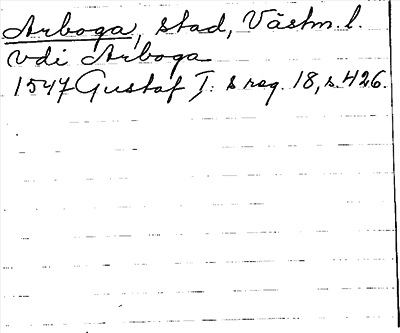 Arboga, stad, Västm. l.
vdi Arboga
1547 Gustaf I: s reg. 18, s. 426.